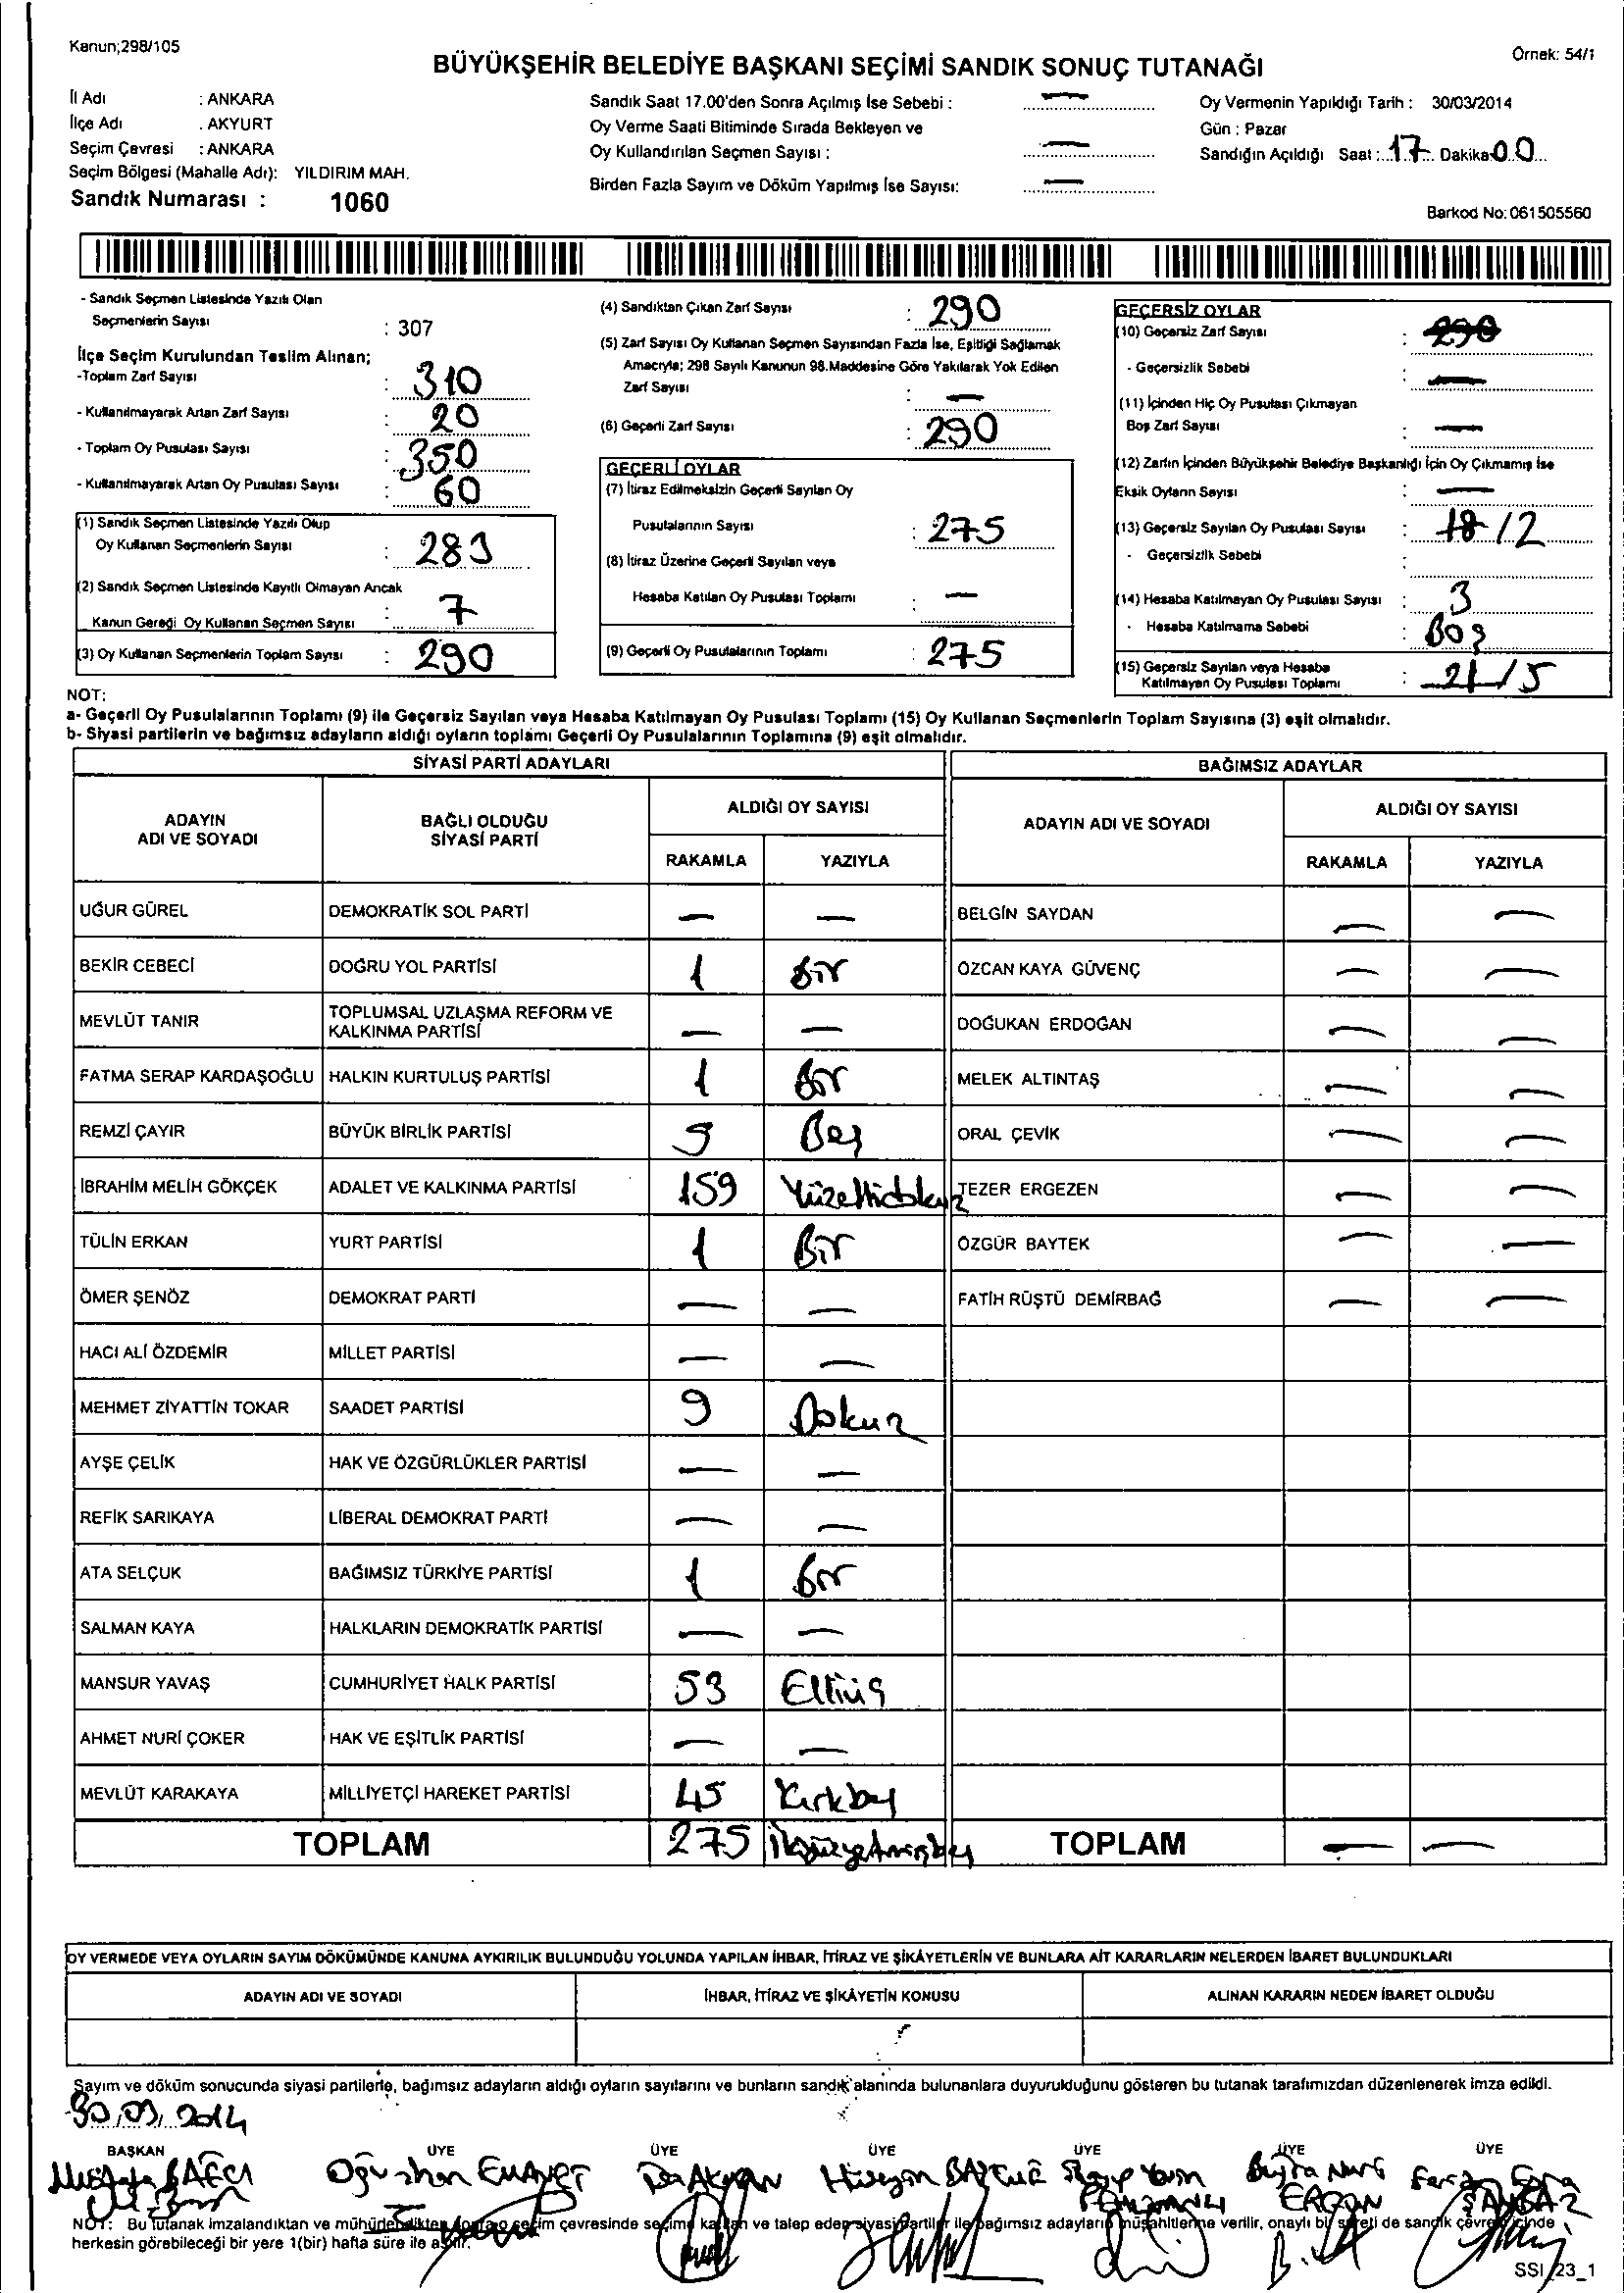 Kanun;298/105
Örnek: 54/1
BÜYÜKŞEHİR BELEDİYE BAŞKANI SEÇİMİ SANDIK SONUÇ TUTANAĞI
İl Adı : ANKARA
İlçe Adı . AKYURT
Seçim Çevresi : ANKARA
Seçim Bölgesi (Mahalle Adı): YILDIRIM MAH.
Sandık Numarası : 1060
Sandık Saat 17.00'den Sonra Açılmış İse Sebebi : —
Oy Verme Saati Bitiminde Sırada Bekleyen ve
Oy Kullandırılan Seçmen Sayısı : —
Birden Fazla Sayım ve Döküm Yapılmış İse Sayısı: —
Oy Vermenin Yapıldığı Tarih : 30/03/2014
Gün : Pazar
Sandığın Açıldığı Saat : 17 Dakika 00
Barkod No: 061505560
- Sandık Seçmen Listesinde Yazılı Olan
Seçmenlerin Sayısı : 307
İlçe Seçim Kurulundan Teslim Alınan;
-Toplam Zarf Sayısı : 310
- Kullanılmayarak Artan Zarf Sayısı : 20
- Toplam Oy Pusulası Sayısı : 350
- Kullanılmayarak Artan Oy Pusulası Sayısı : 60
(1) Sandık Seçmen Listesinde Yazılı Olup
Oy Kullanan Seçmenlerin Sayısı : 283
(2) Sandık Seçmen Listesinde Kayıtlı Olmayan Ancak
Kanun Gereği Oy Kullanan Seçmen Sayısı : 7
(3) Oy Kullanan Seçmenlerin Toplam Sayısı : 290
(4) Sandıktan Çıkan Zarf Sayısı : 290
(5) Zarf Sayısı Oy Kullanan Seçmen Sayısından Fazla İse, Eşitliği Sağlamak
Amacıyla; 298 Sayılı Kanunun 98.Maddesine Göre Yakılarak Yok Edilen
Zarf Sayısı : —
(6) Geçerli Zarf Sayısı : 290
GEÇERLİ OYLAR
(7) İtiraz Edilmeksizin Geçerli Sayılan Oy
Pusulalarının Sayısı : 275
(8) İtiraz Üzerine Geçerli Sayılan veya
Hesaba Katılan Oy Pusulası Toplamı : —
(9) Geçerli Oy Pusulalarının Toplamı : 275
GEÇERSİZ OYLAR
(10) Geçersiz Zarf Sayısı : 290
- Geçersizlik Sebebi : —
(11) İçinden Hiç Oy Pusulası Çıkmayan
Boş Zarf Sayısı : —
(12) Zarfın İçinden Büyükşehir Belediye Başkanlığı İçin Oy Çıkmamış İse
Eksik Oyların Sayısı : —
(13) Geçersiz Sayılan Oy Pusulası Sayısı : 18 12
- Geçersizlik Sebebi :
(14) Hesaba Katılmayan Oy Pusulası Sayısı : 3
- Hesaba Katılmama Sebebi : Boş
(15) Geçersiz Sayılan veya Hesaba
Katılmayan Oy Pusulası Toplamı : 21 15
NOT:
a- Geçerli Oy Pusulalarının Toplamı (9) ile Geçersiz Sayılan veya Hesaba Katılmayan Oy Pusulası Toplamı (15) Oy Kullanan Seçmenlerin Toplam Sayısına (3) eşit olmalıdır.
b- Siyasi partilerin ve bağımsız adayların aldığı oyların toplamı Geçerli Oy Pusulalarının Toplamına (9) eşit olmalıdır.
SİYASİ PARTİ ADAYLARI
ADAYIN ADI VE SOYADI BAĞLI OLDUĞU SİYASİ PARTİ ALDIĞI OY SAYISI
RAKAMLA YAZIYLA
UĞUR GÜREL DEMOKRATİK SOL PARTİ — —
BEKİR CEBECİ DOĞRU YOL PARTİSİ 1 Bir
MEVLÜT TANIR TOPLUMSAL UZLAŞMA REFORM VE KALKINMA PARTİSİ — —
FATMA SERAP KARDAŞOĞLU HALKIN KURTULUŞ PARTİSİ 1 Bir
REMZİ ÇAYIR BÜYÜK BİRLİK PARTİSİ 5 Beş
İBRAHİM MELİH GÖKÇEK ADALET VE KALKINMA PARTİSİ 159 Yüzellidokuz
TÜLİN ERKAN YURT PARTİSİ 1 Bir
ÖMER ŞENÖZ DEMOKRAT PARTİ — —
HACI ALİ ÖZDEMİR MİLLET PARTİSİ — —
MEHMET ZİYATTİN TOKAR SAADET PARTİSİ 9 Dokuz
AYŞE ÇELİK HAK VE ÖZGÜRLÜKLER PARTİSİ — —
REFİK SARIKAYA LİBERAL DEMOKRAT PARTİ — —
ATA SELÇUK BAĞIMSIZ TÜRKİYE PARTİSİ 1 Bir
SALMAN KAYA HALKLARIN DEMOKRATİK PARTİSİ — —
MANSUR YAVAŞ CUMHURİYET HALK PARTİSİ 53 Elliüç
AHMET NURİ ÇOKER HAK VE EŞİTLİK PARTİSİ — —
MEVLÜT KARAKAYA MİLLİYETÇİ HAREKET PARTİSİ 45 Kırkbeş
TOPLAM 275 İkiyüzyetmişbeş
BAĞIMSIZ ADAYLAR
ADAYIN ADI VE SOYADI ALDIĞI OY SAYISI
RAKAMLA YAZIYLA
BELGİN SAYDAN — —
ÖZCAN KAYA GÜVENÇ — —
DOĞUKAN ERDOĞAN — —
MELEK ALTINTAŞ — —
ORAL ÇEVİK — —
TEZER ERGEZEN — —
ÖZGÜR BAYTEK — —
FATİH RÜŞTÜ DEMİRBAĞ — —
TOPLAM — —
OY VERMEDE VEYA OYLARIN SAYIM DÖKÜMÜNDE KANUNA AYKIRILIK BULUNDUĞU YOLUNDA YAPILAN İHBAR, İTİRAZ VE ŞİKÂYETLERİN VE BUNLARA AİT KARARLARIN NELERDEN İBARET BULUNDUKLARI
ADAYIN ADI VE SOYADI İHBAR, İTİRAZ VE ŞİKÂYETİN KONUSU ALINAN KARARIN NEDEN İBARET OLDUĞU
Sayım ve döküm sonucunda siyasi partilerle, bağımsız adayların aldığı oyların sayılarını ve bunların sandık alanında bulunanlara duyurulduğunu gösteren bu tutanak tarafımızdan düzenlenerek imza edildi.
30.03.2014
BAŞKAN ÜYE ÜYE ÜYE ÜYE ÜYE ÜYE
Mustafa BAĞCI Oğuzhan
NOT: Bu tutanak imzalandıktan ve mühürlendikten sonra o seçim çevresinde seçime katılan ve talep eden siyasi partiler ile bağımsız adayların müşahitlerine verilir, onaylı bir sureti de sandık çevresi içinde
herkesin görebileceği bir yere 1(bir) hafta süre ile asılır.
SSI_23_1